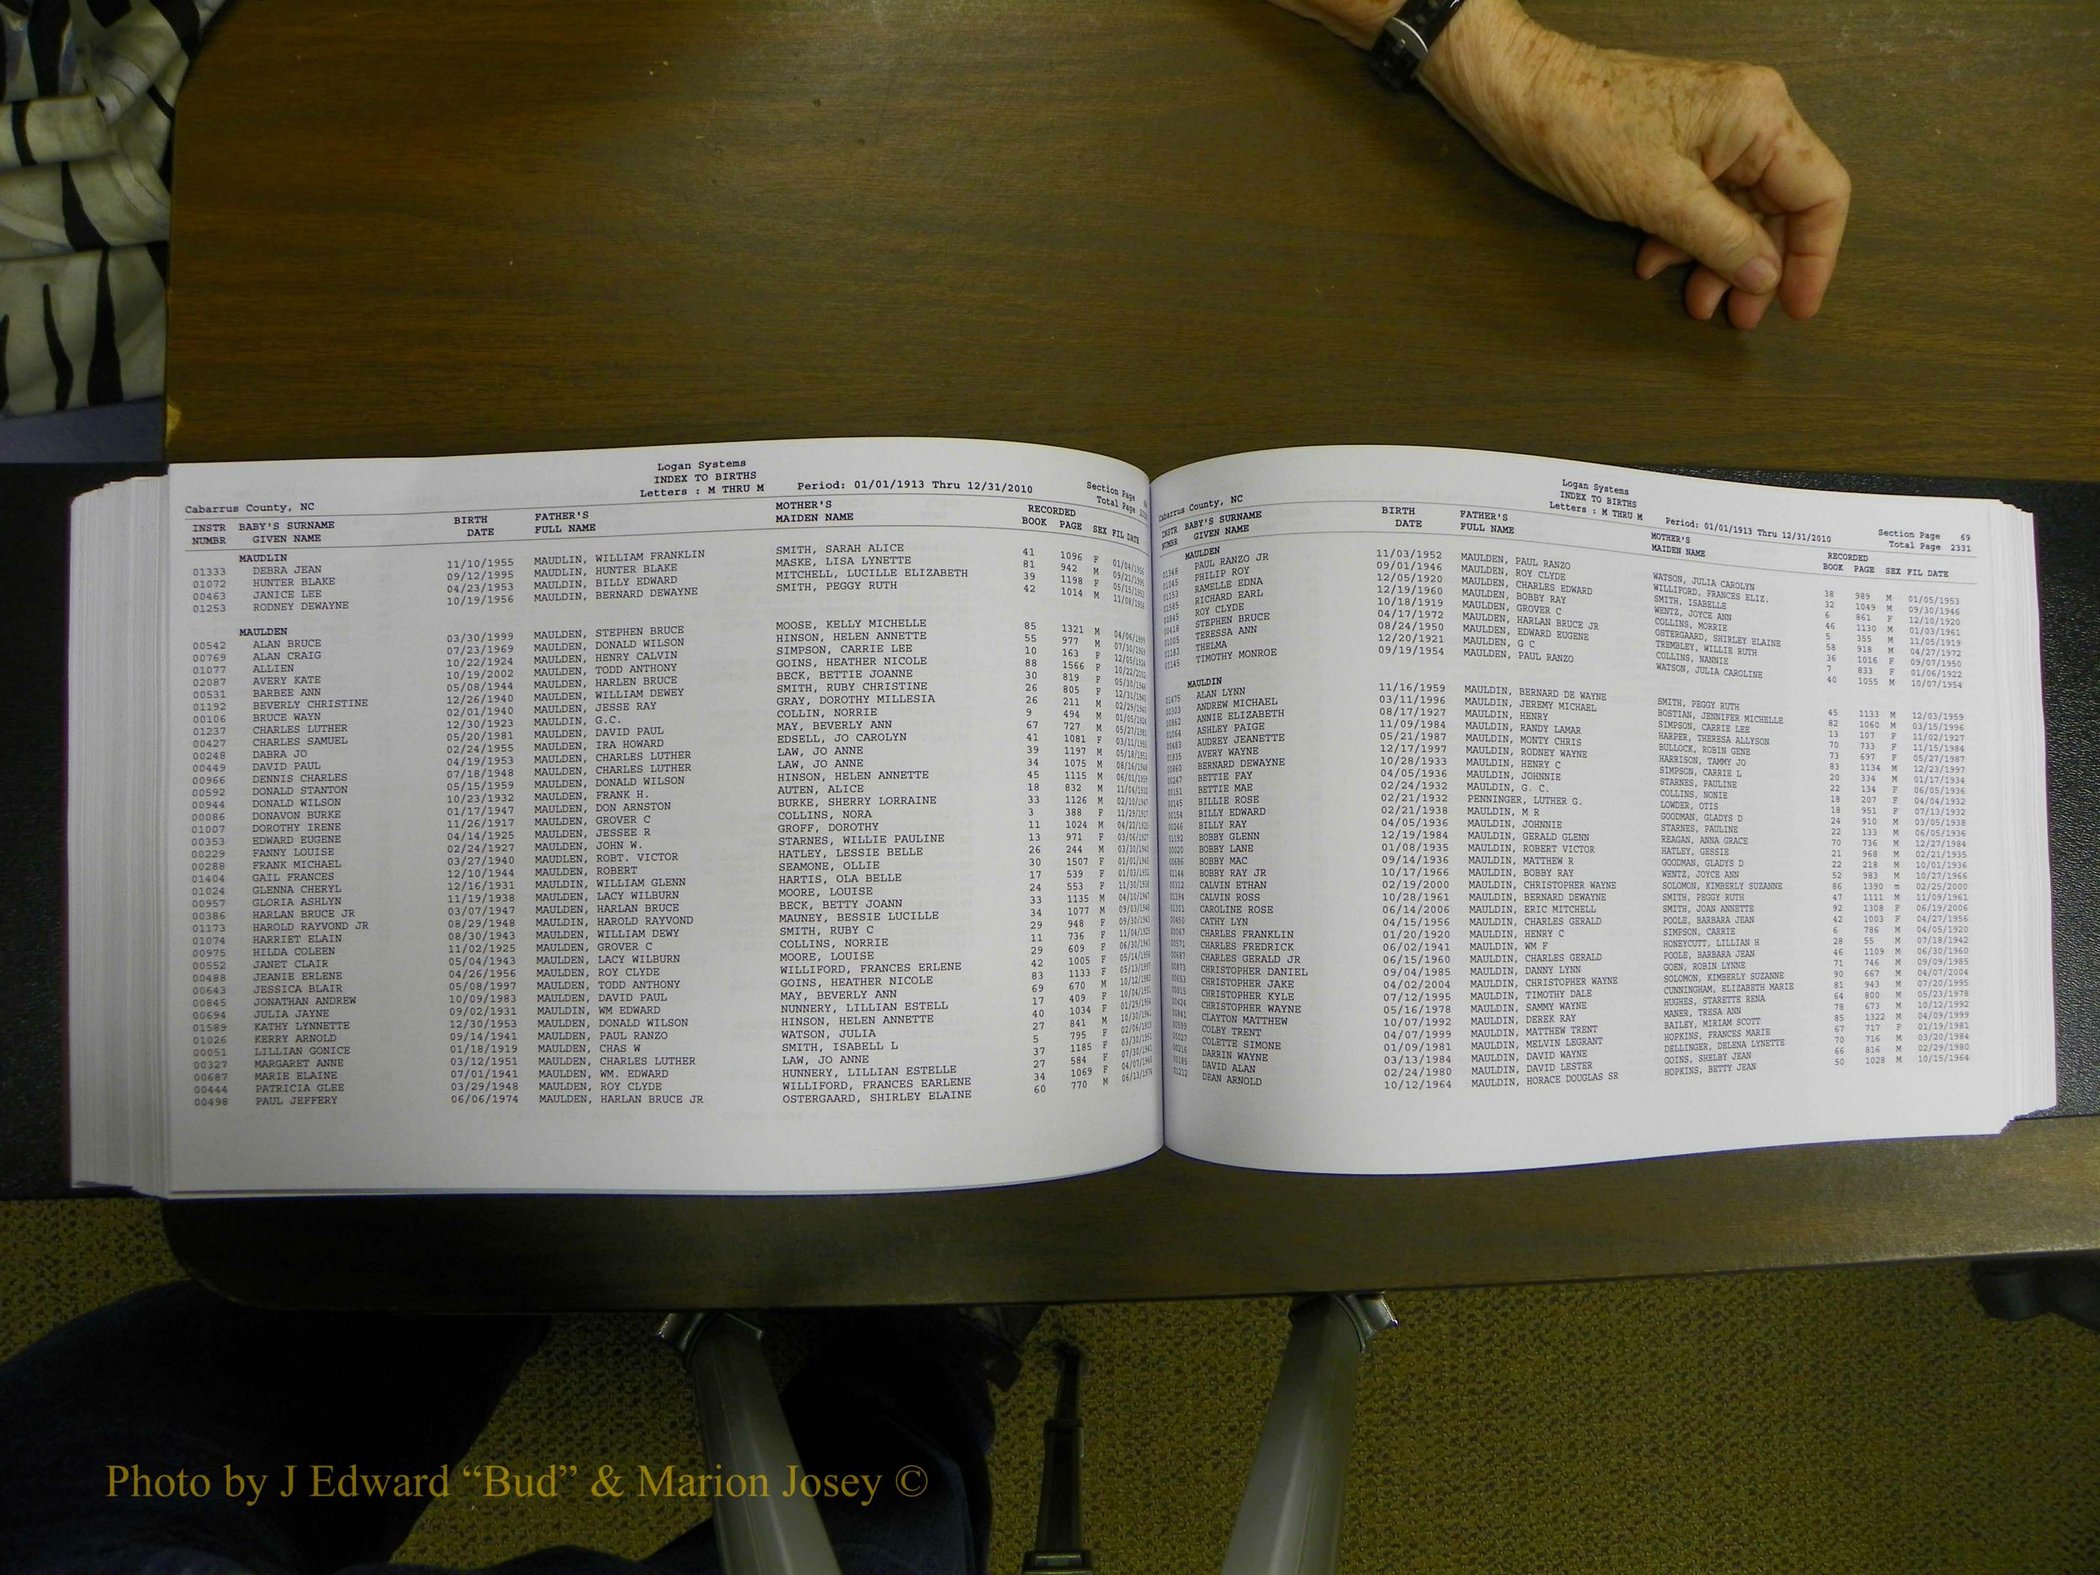 Logan Systems
INDEX TO BIRTHS
Cabarrus County, NC Letters : M THRU M Period: 01/01/1913 Thru 12/31/2010 Section Page
Total Page
INSTR BABY'S SURNAME BIRTH FATHER'S MOTHER'S RECORDED
NUMBR GIVEN NAME DATE FULL NAME MAIDEN NAME BOOK PAGE SEX FIL DATE
MAUDLIN
01333 DEBRA JEAN 11/10/1955 MAUDLIN, WILLIAM FRANKLIN SMITH, SARAH ALICE 41 1096 F 01/04/1956
01072 HUNTER BLAKE 09/12/1995 MAUDLIN, HUNTER BLAKE MASKE, LISA LYNETTE 81 942 M 09/21/1995
00463 JANICE LEE 04/23/1953 MAULDIN, BILLY EDWARD MITCHELL, LUCILLE ELIZABETH 39 1198 F 05/15/1953
01253 RODNEY DEWAYNE 10/19/1956 MAULDIN, BERNARD DEWAYNE SMITH, PEGGY RUTH 42 1014 M 11/08/1956
MAULDEN
00542 ALAN BRUCE 03/30/1999 MAULDEN, STEPHEN BRUCE MOOSE, KELLY MICHELLE 85 1321 M 04/06/1999
00769 ALAN CRAIG 07/23/1969 MAULDEN, DONALD WILSON HINSON, HELEN ANNETTE 55 977 M 07/30/1969
01077 ALLIEN 10/22/1924 MAULDEN, HENRY CALVIN SIMPSON, CARRIE LEE 10 163 F 12/05/1924
02087 AVERY KATE 10/19/2002 MAULDEN, TODD ANTHONY GOINS, HEATHER NICOLE 88 1566 F 10/22/2002
00531 BARBEE ANN 05/08/1944 MAULDEN, HARLEN BRUCE BECK, BETTIE JOANNE 30 819 F 05/30/1944
01192 BEVERLY CHRISTINE 12/26/1940 MAULDEN, WILLIAM DEWEY SMITH, RUBY CHRISTINE 26 805 F 12/31/1940
00106 BRUCE WAYN 02/01/1940 MAULDEN, JESSE RAY GRAY, DOROTHY MILLESIA 26 211 M 02/29/1940
01237 CHARLES LUTHER 12/30/1923 MAULDIN, G.C. COLLIN, NORRIE 9 494 M 01/05/1924
00427 CHARLES SAMUEL 05/20/1981 MAULDEN, DAVID PAUL MAY, BEVERLY ANN 67 727 M 05/27/1981
00248 DABRA JO 02/24/1955 MAULDEN, IRA HOWARD EDSELL, JO CAROLYN 41 1081 F 03/11/1955
00449 DAVID PAUL 04/19/1953 MAULDEN, CHARLES LUTHER LAW, JO ANNE 39 1197 M 05/18/1953
00966 DENNIS CHARLES 07/18/1948 MAULDEN, CHARLES LUTHER LAW, JO ANNE 34 1075 M 08/16/1948
00592 DONALD STANTON 05/15/1959 MAULDEN, DONALD WILSON HINSON, HELEN ANNETTE 45 1115 M 06/01/1959
00944 DONALD WILSON 10/23/1932 MAULDEN, FRANK H. AUTEN, ALICE 18 832 M 11/04/1932
00086 DONAVON BURKE 01/17/1947 MAULDEN, DON ARNSTON BURKE, SHERRY LORRAINE 33 1126 M 02/10/1947
01007 DOROTHY IRENE 11/26/1917 MAULDEN, GROVER C COLLINS, NORA 3 388 F 11/29/1917
00353 EDWARD EUGENE 04/14/1925 MAULDEN, JESSEE R GROFF, DOROTHY 11 1024 M 04/22/1925
00229 FANNY LOUISE 02/24/1927 MAULDEN, JOHN W. STARNES, WILLIE PAULINE 13 971 F 03/06/1927
00288 FRANK MICHAEL 03/27/1940 MAUDLEN, ROBT. VICTOR HATLEY, LESSIE BELLE 26 244 M 03/30/1940
01404 GAIL FRANCES 12/10/1944 MAULDEN, ROBERT SEAMONE, OLLIE 30 1507 F 01/01/1945
01024 GLENNA CHERYL 12/16/1931 MAULDIN, WILLIAM GLENN HARTIS, OLA BELLE 17 539 F 01/03/1932
00957 GLORIA ASHLYN 11/19/1938 MAULDEN, LACY WILBURN MOORE, LOUISE 24 553 F 11/30/1938
00386 HARLAN BRUCE JR 03/07/1947 MAULDEN, HARLAN BRUCE BECK, BETTY JOANN 33 1135 M 04/10/1947
01173 HAROLD RAYVOND JR 08/29/1948 MAULDIN, HAROLD RAYVOND MAUNEY, BESSIE LUCILLE 34 1077 M 09/03/1948
01074 HARRIET ELAIN 08/30/1943 MAULDEN, WILLIAM DEWY SMITH, RUBY C 29 948 F 09/30/1943
00975 HILDA COLEEN 11/02/1925 MAULDEN, GROVER C COLLINS, NORRIE 11 736 F 11/04/1925
00552 JANET CLAIR 05/04/1943 MAULDEN, LACY WILBURN MOORE, LOUISE 29 609 F 06/30/1943
00488 JEANIE ERLENE 04/26/1956 MAULDEN, ROY CLYDE WILLIFORD, FRANCES ERLENE 42 1005 F 05/14/1956
00643 JESSICA BLAIR 05/08/1997 MAULDEN, TODD ANTHONY GOINS, HEATHER NICOLE 83 1133 F 05/13/1997
00845 JONATHAN ANDREW 10/09/1983 MAULDEN, DAVID PAUL MAY, BEVERLY ANN 69 670 M 10/12/1983
00694 JULIA JAYNE 09/02/1931 MAULDIN, WM EDWARD NUNNERY, LILLIAN ESTELL 17 409 F 10/04/1931
01589 KATHY LYNNETTE 12/30/1953 MAULDEN, DONALD WILSON HINSON, HELEN ANNETTE 40 1034 F 01/29/1954
01026 KERRY ARNOLD 09/14/1941 MAULDEN, PAUL RANZO WATSON, JULIA 27 841 M 10/30/1941
00051 LILLIAN GONICE 01/18/1919 MAULDEN, CHAS W SMITH, ISABELL L 5 795 F 02/06/1919
00327 MARGARET ANNE 03/12/1951 MAULDEN, CHARLES LUTHER LAW, JO ANNE 37 1185 F 03/30/1951
00687 MARIE ELAINE 07/01/1941 MAULDEN, WM. EDWARD HUNNERY, LILLIAN ESTELLE 27 584 F 07/30/1941
00444 PATRICIA GLEE 03/29/1948 MAULDEN, ROY CLYDE WILLIFORD, FRANCES EARLENE 34 1069 F 04/07/1948
00498 PAUL JEFFERY 06/06/1974 MAULDEN, HARLAN BRUCE JR OSTERGAARD, SHIRLEY ELAINE 60 770 M 06/13/1974
Logan Systems
INDEX TO BIRTHS
Cabarrus County, NC Letters : M THRU M Period: 01/01/1913 Thru 12/31/2010 Section Page 69
Total Page 2331
INSTR BABY'S SURNAME BIRTH FATHER'S MOTHER'S RECORDED
NUMBR GIVEN NAME DATE FULL NAME MAIDEN NAME BOOK PAGE SEX FIL DATE
MAULDEN
01348 PAUL RANZO JR 11/03/1952 MAULDEN, PAUL RANZO WATSON, JULIA CAROLYN 38 989 M 01/05/1953
01045 PHILIP ROY 09/01/1946 MAULDEN, ROY CLYDE WILLIFORD, FRANCES ELIZ. 32 1049 M 09/30/1946
01153 RAMELLE EDNA 12/05/1920 MAULDEN, CHARLES EDWARD SMITH, ISABELLE 6 861 F 12/10/1920
01585 RICHARD EARL 12/19/1960 MAULDEN, BOBBY RAY WENTZ, JOYCE ANN 46 1130 M 01/03/1961
00845 ROY CLYDE 10/18/1919 MAULDEN, GROVER C COLLINS, MORRIE 5 355 M 11/05/1919
00418 STEPHEN BRUCE 04/17/1972 MAULDEN, HARLAN BRUCE JR OSTERGAARD, SHIRLEY ELAINE 58 918 M 04/27/1972
01005 TERESSA ANN 08/24/1950 MAULDEN, EDWARD EUGENE TREMBLEY, WILLIE RUTH 36 1016 F 09/07/1950
01183 THELMA 12/20/1921 MAULDEN, G C COLLINS, NANNIE 7 833 F 01/06/1922
01145 TIMOTHY MONROE 09/19/1954 MAULDEN, PAUL RANZO WATSON, JULIA CAROLINE 40 1055 M 10/07/1954
MAULDIN
01475 ALAN LYNN 11/16/1959 MAULDIN, BERNARD DE WAYNE SMITH, PEGGY RUTH 45 1133 M 12/03/1959
00303 ANDREW MICHAEL 03/11/1996 MAULDIN, JEREMY MICHAEL BOSTIAN, JENNIFER MICHELLE 82 1060 M 03/15/1996
00862 ANNIE ELIZABETH 08/17/1927 MAULDIN, HENRY SIMPSON, CARRIE LEE 13 107 F 11/02/1927
01064 ASHLEY PAIGE 11/09/1984 MAULDIN, RANDY LAMAR HARPER, THERESA ALLYSON 70 733 F 11/15/1984
00483 AUDREY JEANETTE 05/21/1987 MAULDIN, MONTY CHRIS BULLOCK, ROBIN GENE 73 697 F 05/27/1987
01835 AVERY WAYNE 12/17/1997 MAULDIN, RODNEY WAYNE HARRISON, TAMMY JO 83 1134 M 12/23/1997
00860 BERNARD DEWAYNE 10/28/1933 MAULDIN, HENRY C SIMPSON, CARRIE L 20 334 M 01/17/1934
00247 BETTIE FAY 04/05/1936 MAULDIN, JOHNNIE STARNES, PAULINE 22 134 F 06/05/1936
00151 BETTIE MAE 02/24/1932 MAULDIN, G. C. COLLINS, NONIE 18 207 F 04/04/1932
00145 BILLIE ROSE 02/21/1932 PENNINGER, LUTHER G. LOWDER, OTIS 18 951 F 07/13/1932
00154 BILLY EDWARD 02/21/1938 MAULDIN, M R GOODMAN, GLADYS D 24 910 M 03/05/1938
00246 BILLY RAY 04/05/1936 MAULDIN, JOHNNIE STARNES, PAULINE 22 133 M 06/05/1936
01192 BOBBY GLENN 12/19/1984 MAULDIN, GERALD GLENN REAGAN, ANNA GRACE 70 736 M 12/27/1984
00020 BOBBY LANE 01/08/1935 MAULDIN, ROBERT VICTOR HATLEY, GESSIE 21 968 M 02/21/1935
00686 BOBBY MAC 09/14/1936 MAULDIN, MATTHEW R GOODMAN, GLADYS D 22 218 M 10/01/1936
01144 BOBBY RAY JR 10/17/1966 MAULDIN, BOBBY RAY WENTZ, JOYCE ANN 52 983 M 10/27/1966
00312 CALVIN ETHAN 02/19/2000 MAULDIN, CHRISTOPHER WAYNE SOLOMON, KIMBERLY SUZANNE 86 1390 m 02/25/2000
01394 CALVIN ROSS 10/28/1961 MAULDIN, BERNARD DEWAYNE SMITH, PEGGY RUTH 47 1111 M 11/09/1961
01301 CAROLINE ROSE 06/14/2006 MAULDIN, ERIC MITCHELL SMITH, JOAN ANNETTE 92 1308 F 06/19/2006
00450 CATHY LYN 04/15/1956 MAULDIN, CHARLES GERALD POOLE, BARBARA JEAN 42 1003 F 04/27/1956
00067 CHARLES FRANKLIN 01/20/1920 MAULDIN, HENRY C SIMPSON, CARRIE 6 786 M 04/05/1920
00571 CHARLES FREDRICK 06/02/1941 MAULDIN, WM F HONEYCUTT, LILLIAN H 28 55 M 07/18/1942
00687 CHARLES GERALD JR 06/15/1960 MAULDIN, CHARLES GERALD POOLE, BARBARA JEAN 46 1109 M 06/30/1960
00873 CHRISTOPHER DANIEL 09/04/1985 MAULDIN, DANNY LYNN GOEN, ROBIN LYNNE 71 746 M 09/09/1985
00653 CHRISTOPHER JAKE 04/02/2004 MAULDIN, CHRISTOPHER WAYNE SOLOMON, KIMBERLY SUZANNE 90 667 M 04/07/2004
00815 CHRISTOPHER KYLE 07/12/1995 MAULDIN, TIMOTHY DALE CUNNINGHAM, ELIZABETH MARIE 81 943 M 07/20/1995
00424 CHRISTOPHER WAYNE 05/16/1978 MAULDIN, SAMMY WAYNE HUGHES, STARETTE RENA 64 800 M 05/23/1978
00841 CLAYTON MATTHEW 10/07/1992 MAULDIN, DEREK RAY MANER, TRESA ANN 78 673 M 10/12/1992
00599 COLBY TRENT 04/07/1999 MAULDIN, MATTHEW TRENT BAILEY, MIRIAM SCOTT 85 1322 M 04/09/1999
00027 COLETTE SIMONE 01/09/1981 MAULDIN, MELVIN LEGRANT HOPKINS, FRANCES MARIE 67 717 F 01/19/1981
00216 DARRIN WAYNE 03/13/1984 MAULDIN, DAVID WAYNE DELLINGER, DELENA LYNETTE 70 716 M 03/20/1984
00185 DAVID ALAN 02/24/1980 MAULDIN, DAVID LESTER GOINS, SHELBY JEAN 66 816 M 02/29/1980
01212 DEAN ARNOLD 10/12/1964 MAULDIN, HORACE DOUGLAS SR HOPKINS, BETTY JEAN 50 1028 M 10/15/1964
Photo by J Edward “Bud” & Marion Josey ©